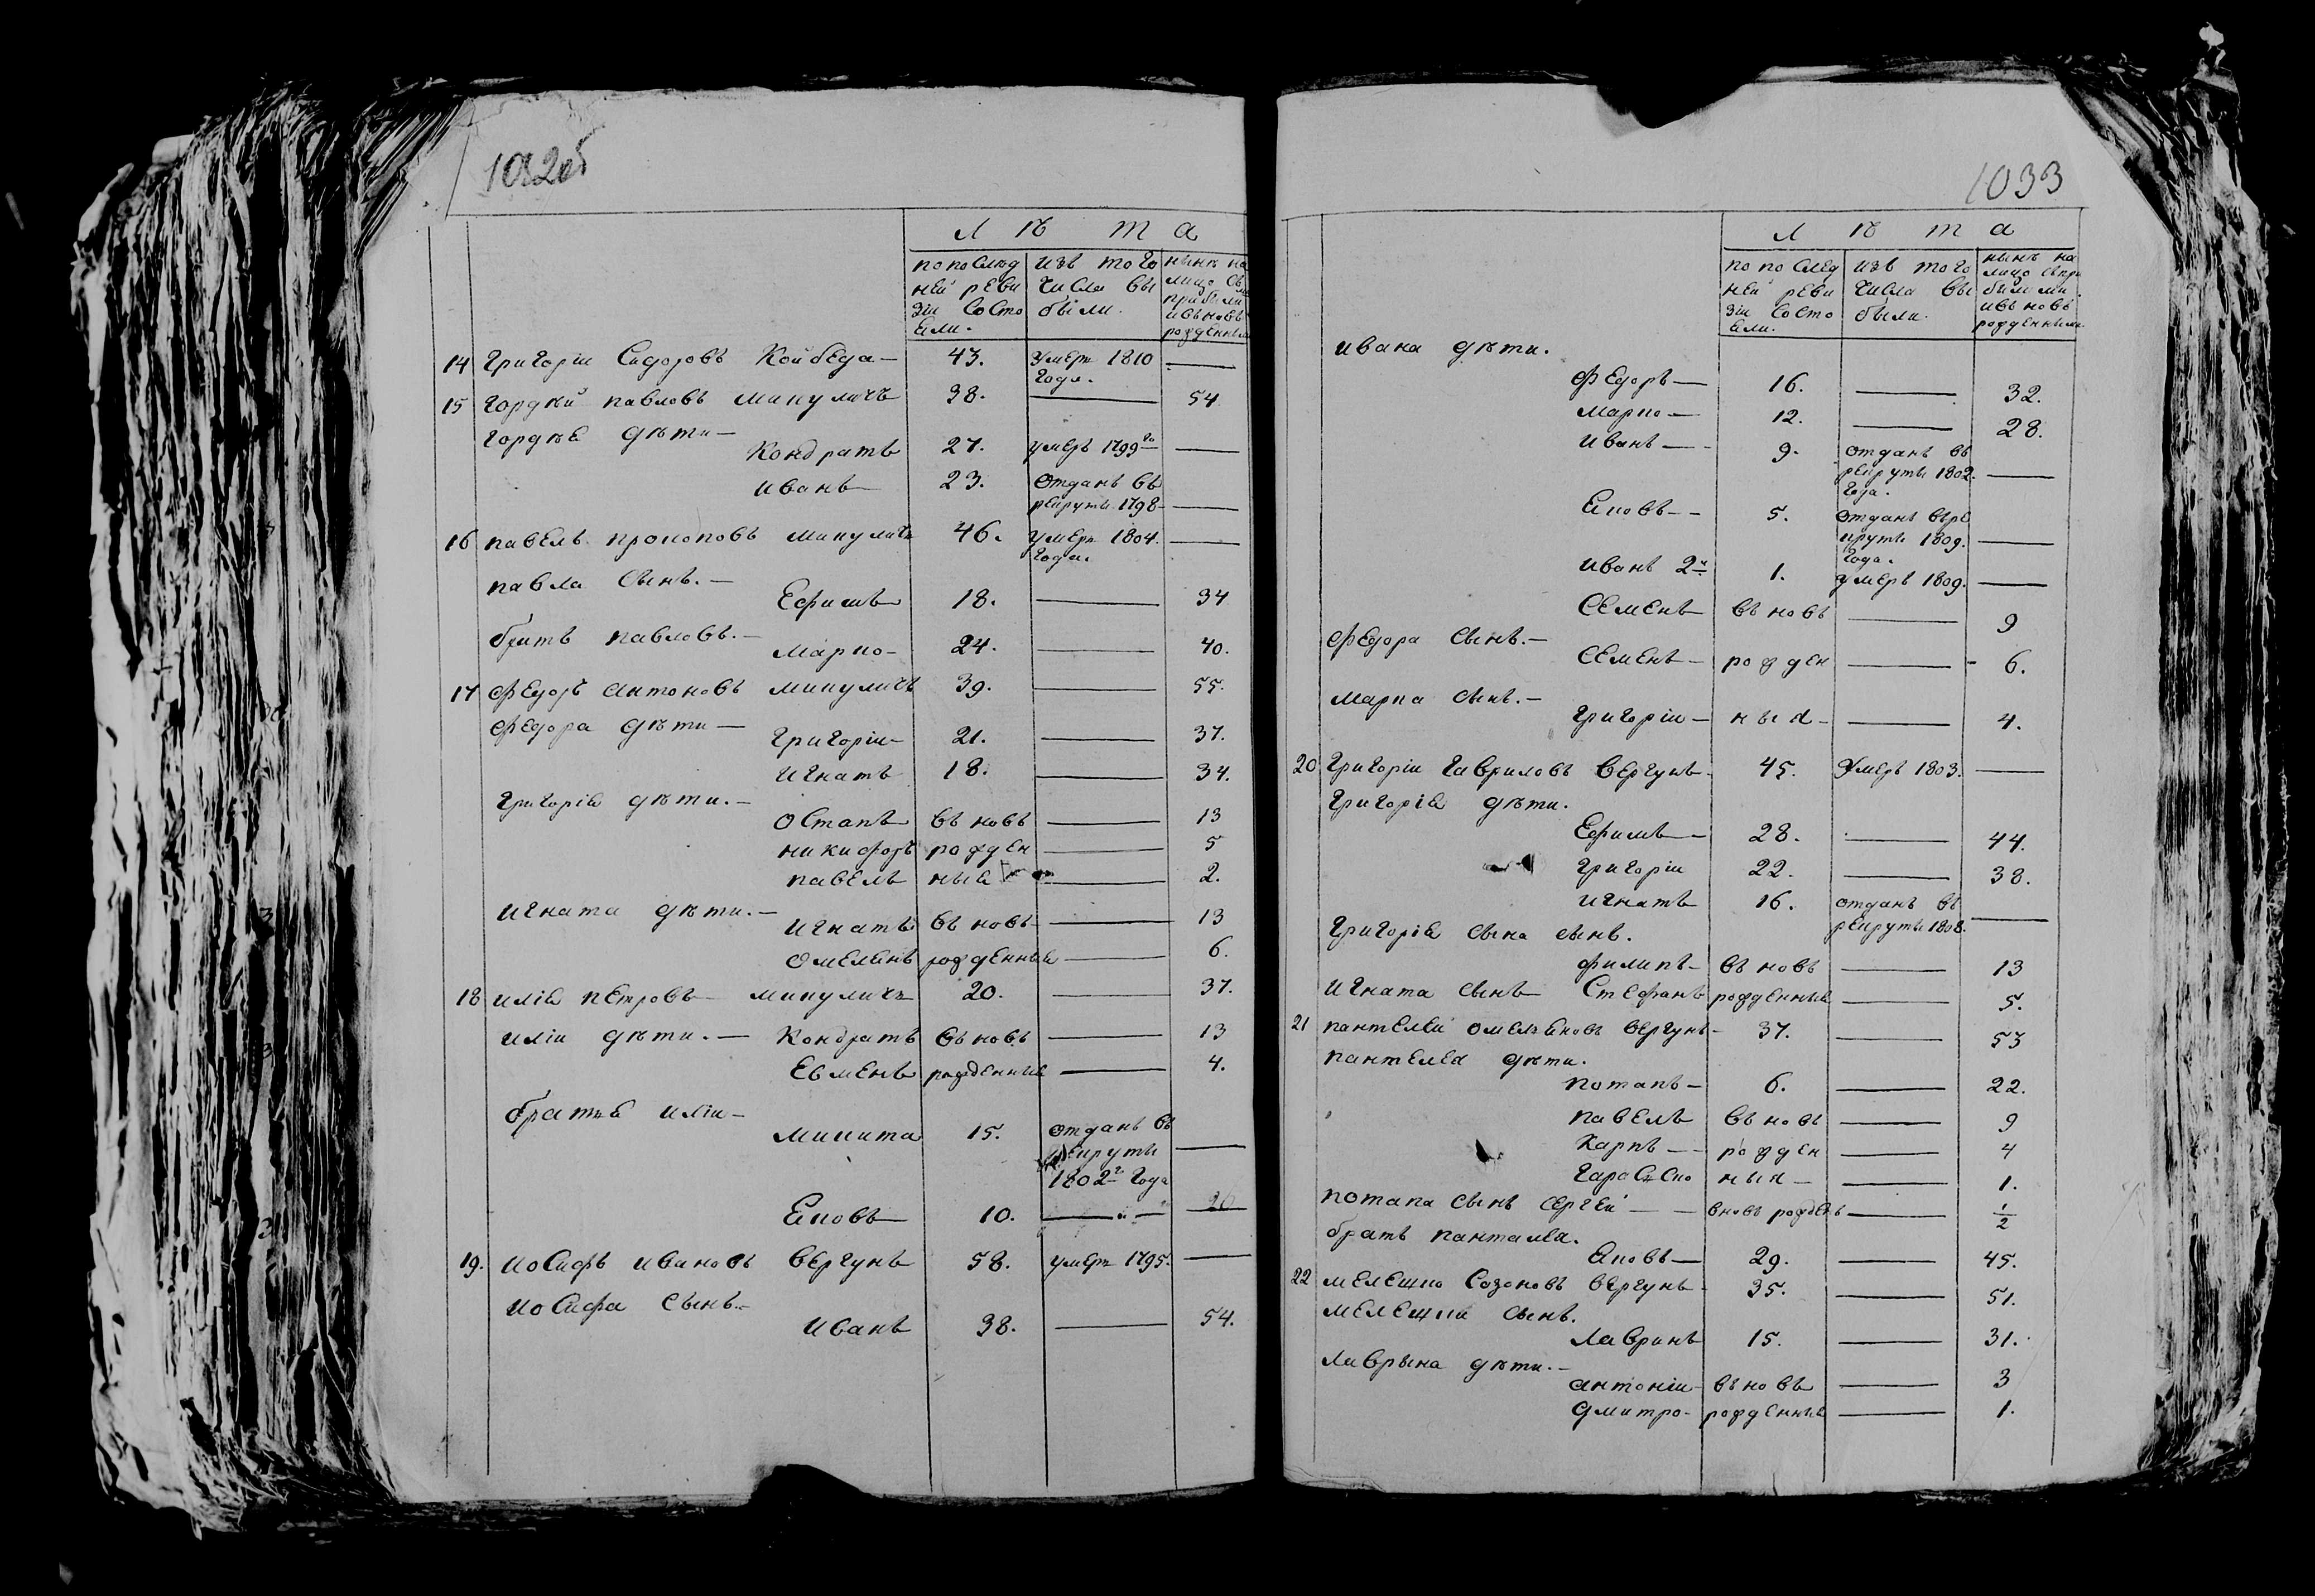 1032об
Л Ѣ Т А
по послѣд
ней реви
зіи состо
яли.
изъ того
числа вы
были.
нынѣ на
лицо съ
прибыли
и вновь
рожденными
14 Григоріи Сидоровъ Койбеда — 43. умеръ 1810 —
года.
15 Гордѣй Павловъ Микуличъ 38. — 54
Гордѣя дѣти —
Кондратъ 27. умеръ 1799го —
Иванъ 23. отданъ въ
рекруты 1798 —
16 Павелъ Прокоповъ Микуличъ 46. умеръ 1804. —
года.
Павла сынъ. —
Ефимъ 18. — 34
братъ Павловъ. —
Марко — 24. — 40.
17 Федоръ Антоновъ Микуличъ 39. — 55.
Федора дѣти —
Григоріи — 21. — 37.
Игнатъ 18. — 34.
Григорія дѣти. —
Остапъ въновь — 13
Никифоръ рожден — 5
Павелъ ныя — 2.
Игната дѣти. —
Игнатъ въновь — 13
Омелянъ рожденныя — 6.
18 Илія Петровъ — Микуличъ 20. — 37.
Иліи дѣти. — Кондратъ въновь — 13
Евменъ рожденныя — 4.
братья Иліи —
Микита 15. отданъ въ
рекруты —
1802г года
Яковъ 10. — 26
19. Иосифъ Ивановъ Вергунъ 58. умеръ 1795. —
Иосифа сынъ. —
Иванъ 38. — 54.
1033
Л Ѣ Т А
по послед
ней реви
зіи состо
яли.
изъ того
числа вы
были.
нынѣ на
лицо съ при
былыми
и въновь
рожденными
Ивана дѣти.
Федоръ — 16. — 32.
Марко — 12. — 28.
Иванъ — 9. отданъ въ
рекруты 1802. —
года.
Яковъ — 5. отданъ въре
круты 1809. —
года.
Иванъ 2й 1. умеръ 1809. —
Семенъ въновь — 9
Федора сынъ. —
Семенъ — рожден — 6.
Марка сынъ. —
Григоріи — ныя — — 4.
20 Григоріи Гавриловъ Вергунъ. 45. умеръ 1803. —
Григорія дѣти.
Ефимъ — 28. — 44.
Григоріи 22. — 38.
Игнатъ 16. отданъ въ
рекруты 1808. —
Григорія сына сынъ.
Филипъ — въновь — 13
Игната сынъ Стефанъ рожденныя — 5.
21 Пантелеи Омельяновъ Вергунъ — 37. — 53
Пантелея дѣти.
Потапъ — 6. — 22.
Павелъ въновь — 9
Карпъ — рожден — 4
Гарасько ныя — — 1.
Потапа сынъ Сергеи — — вновь рожденъ — 1/2
братъ Пантелея.
Яковъ — 29. — 45.
22 Мелешко Созоновъ Вергунъ. 35. — 51.
Мелешки сынъ.
Лавринъ 15. — 31.
Лаврына дѣти. —
Антоніи — въновь — 3
Дмитро — рожденныя — 1.